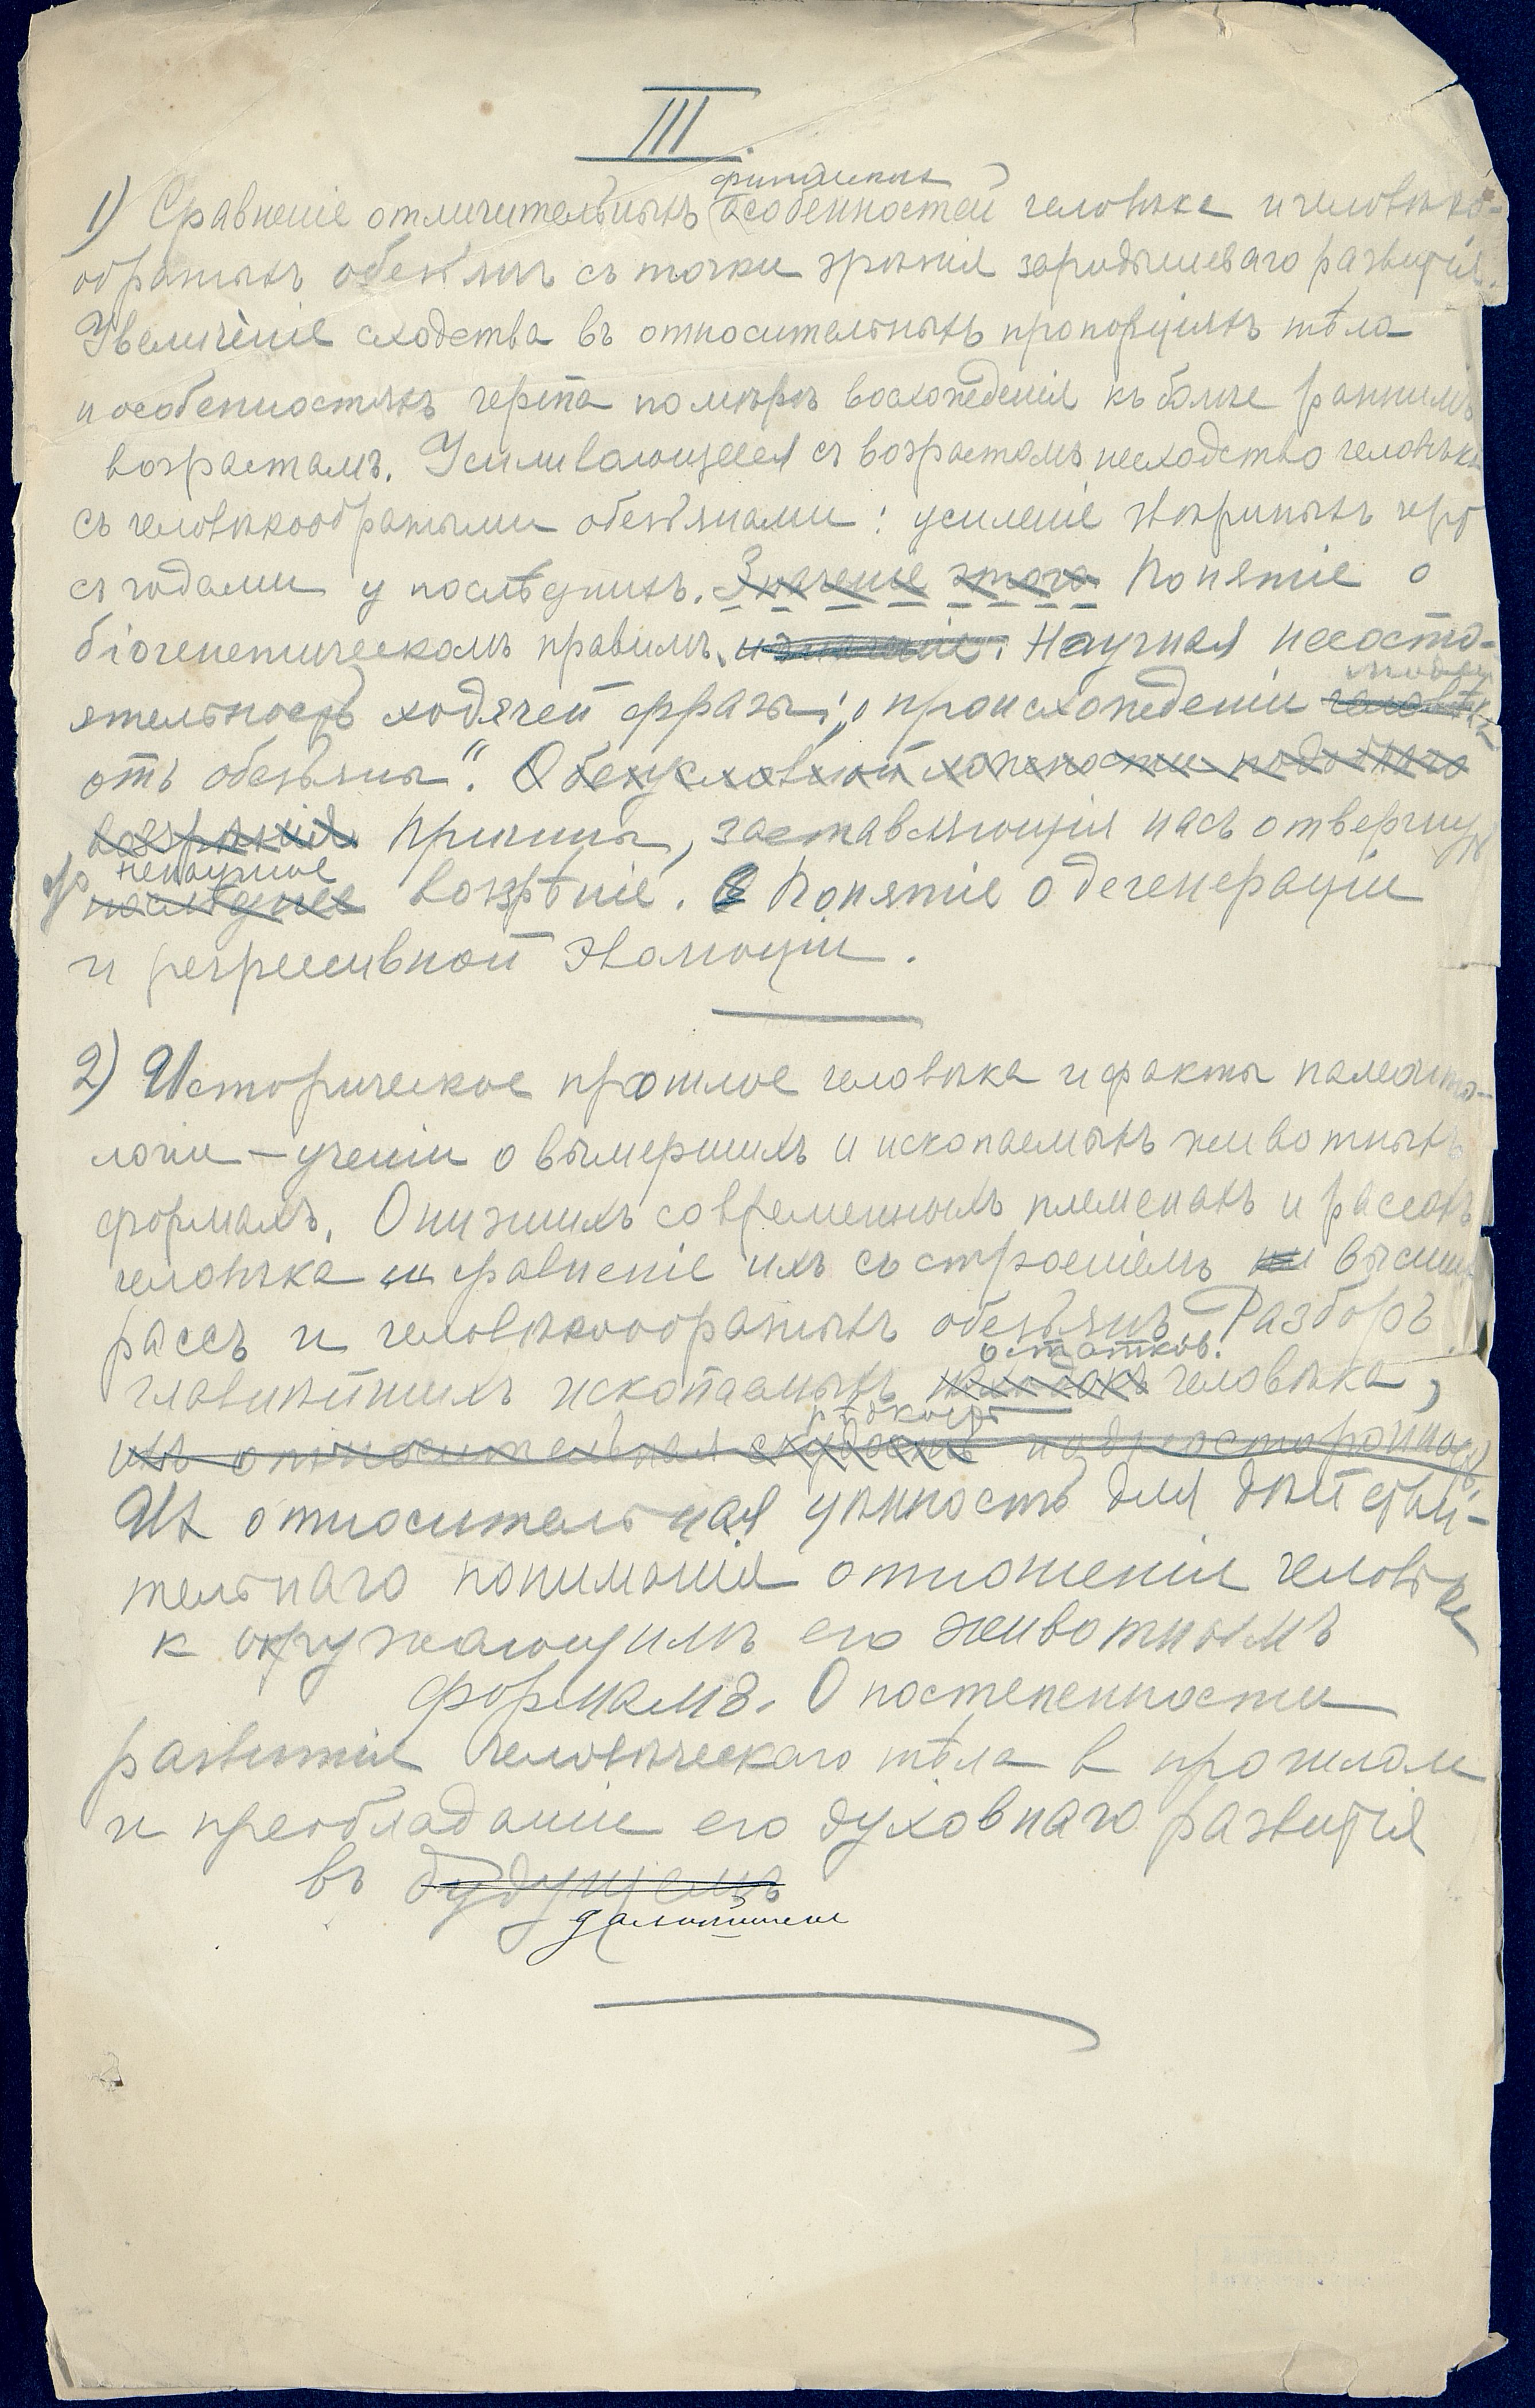 III.
физическихъ
1) Сравненіе отличительныхъ особенностей человѣка и человѣко-
образныхъ обезьянъ съ точки зрѣнія зародышеваго развитія.
Увеличеніе сходства въ относительныхъ пропорціяхъ тѣла
и особенностяхъ черепа по мѣрѣ восхожденія къ болѣе раннимъ
возрастамъ. Усиливающееся съ возрастомъ несходство человѣка
съ человѣкообразными обезьянами: усиленіе звѣриныхъ чертъ
съ годами у послѣднихъ. Значеніе этого Понятіе о
біогенетическомъ правилѣ. и значеніе. Научная несосто-
людей
ятельность ходячей фразы: „о происхожденіи человѣка
отъ обезьяны“. О безусловной ложности подобнаго
воззрѣнія Причины, заставляющія насъ отвергнуть
это ненаучное
послѣднее воззрѣніе. Понятіе о дегенераціи
и регрессивной эволюціи.
2) Историческое прошлое человѣка и факты палеонто-
логіи – ученіи о вымершихъ и ископаемыхъ животныхъ
формахъ. О низшихъ современныхъ племенахъ и расахъ
человѣка и сравненіе ихъ съ строеніемъ высшихъ
рассъ и человѣкообразныхъ обезьянъ. Разборъ
остатков.
главнѣйшихъ ископаемыхъ находокъ человѣка,
рѣдкость
их относительная скудость
Их относительная цѣнность для дѣйстви-
тельнаго пониманія отношенія человѣка
к окружающимъ его животнымъ
формамъ. О постепенности
развитія человѣческаго тѣла в прошлом
и преобладаніи его духовнаго развитія
въ будущемъ
дальнѣйшем